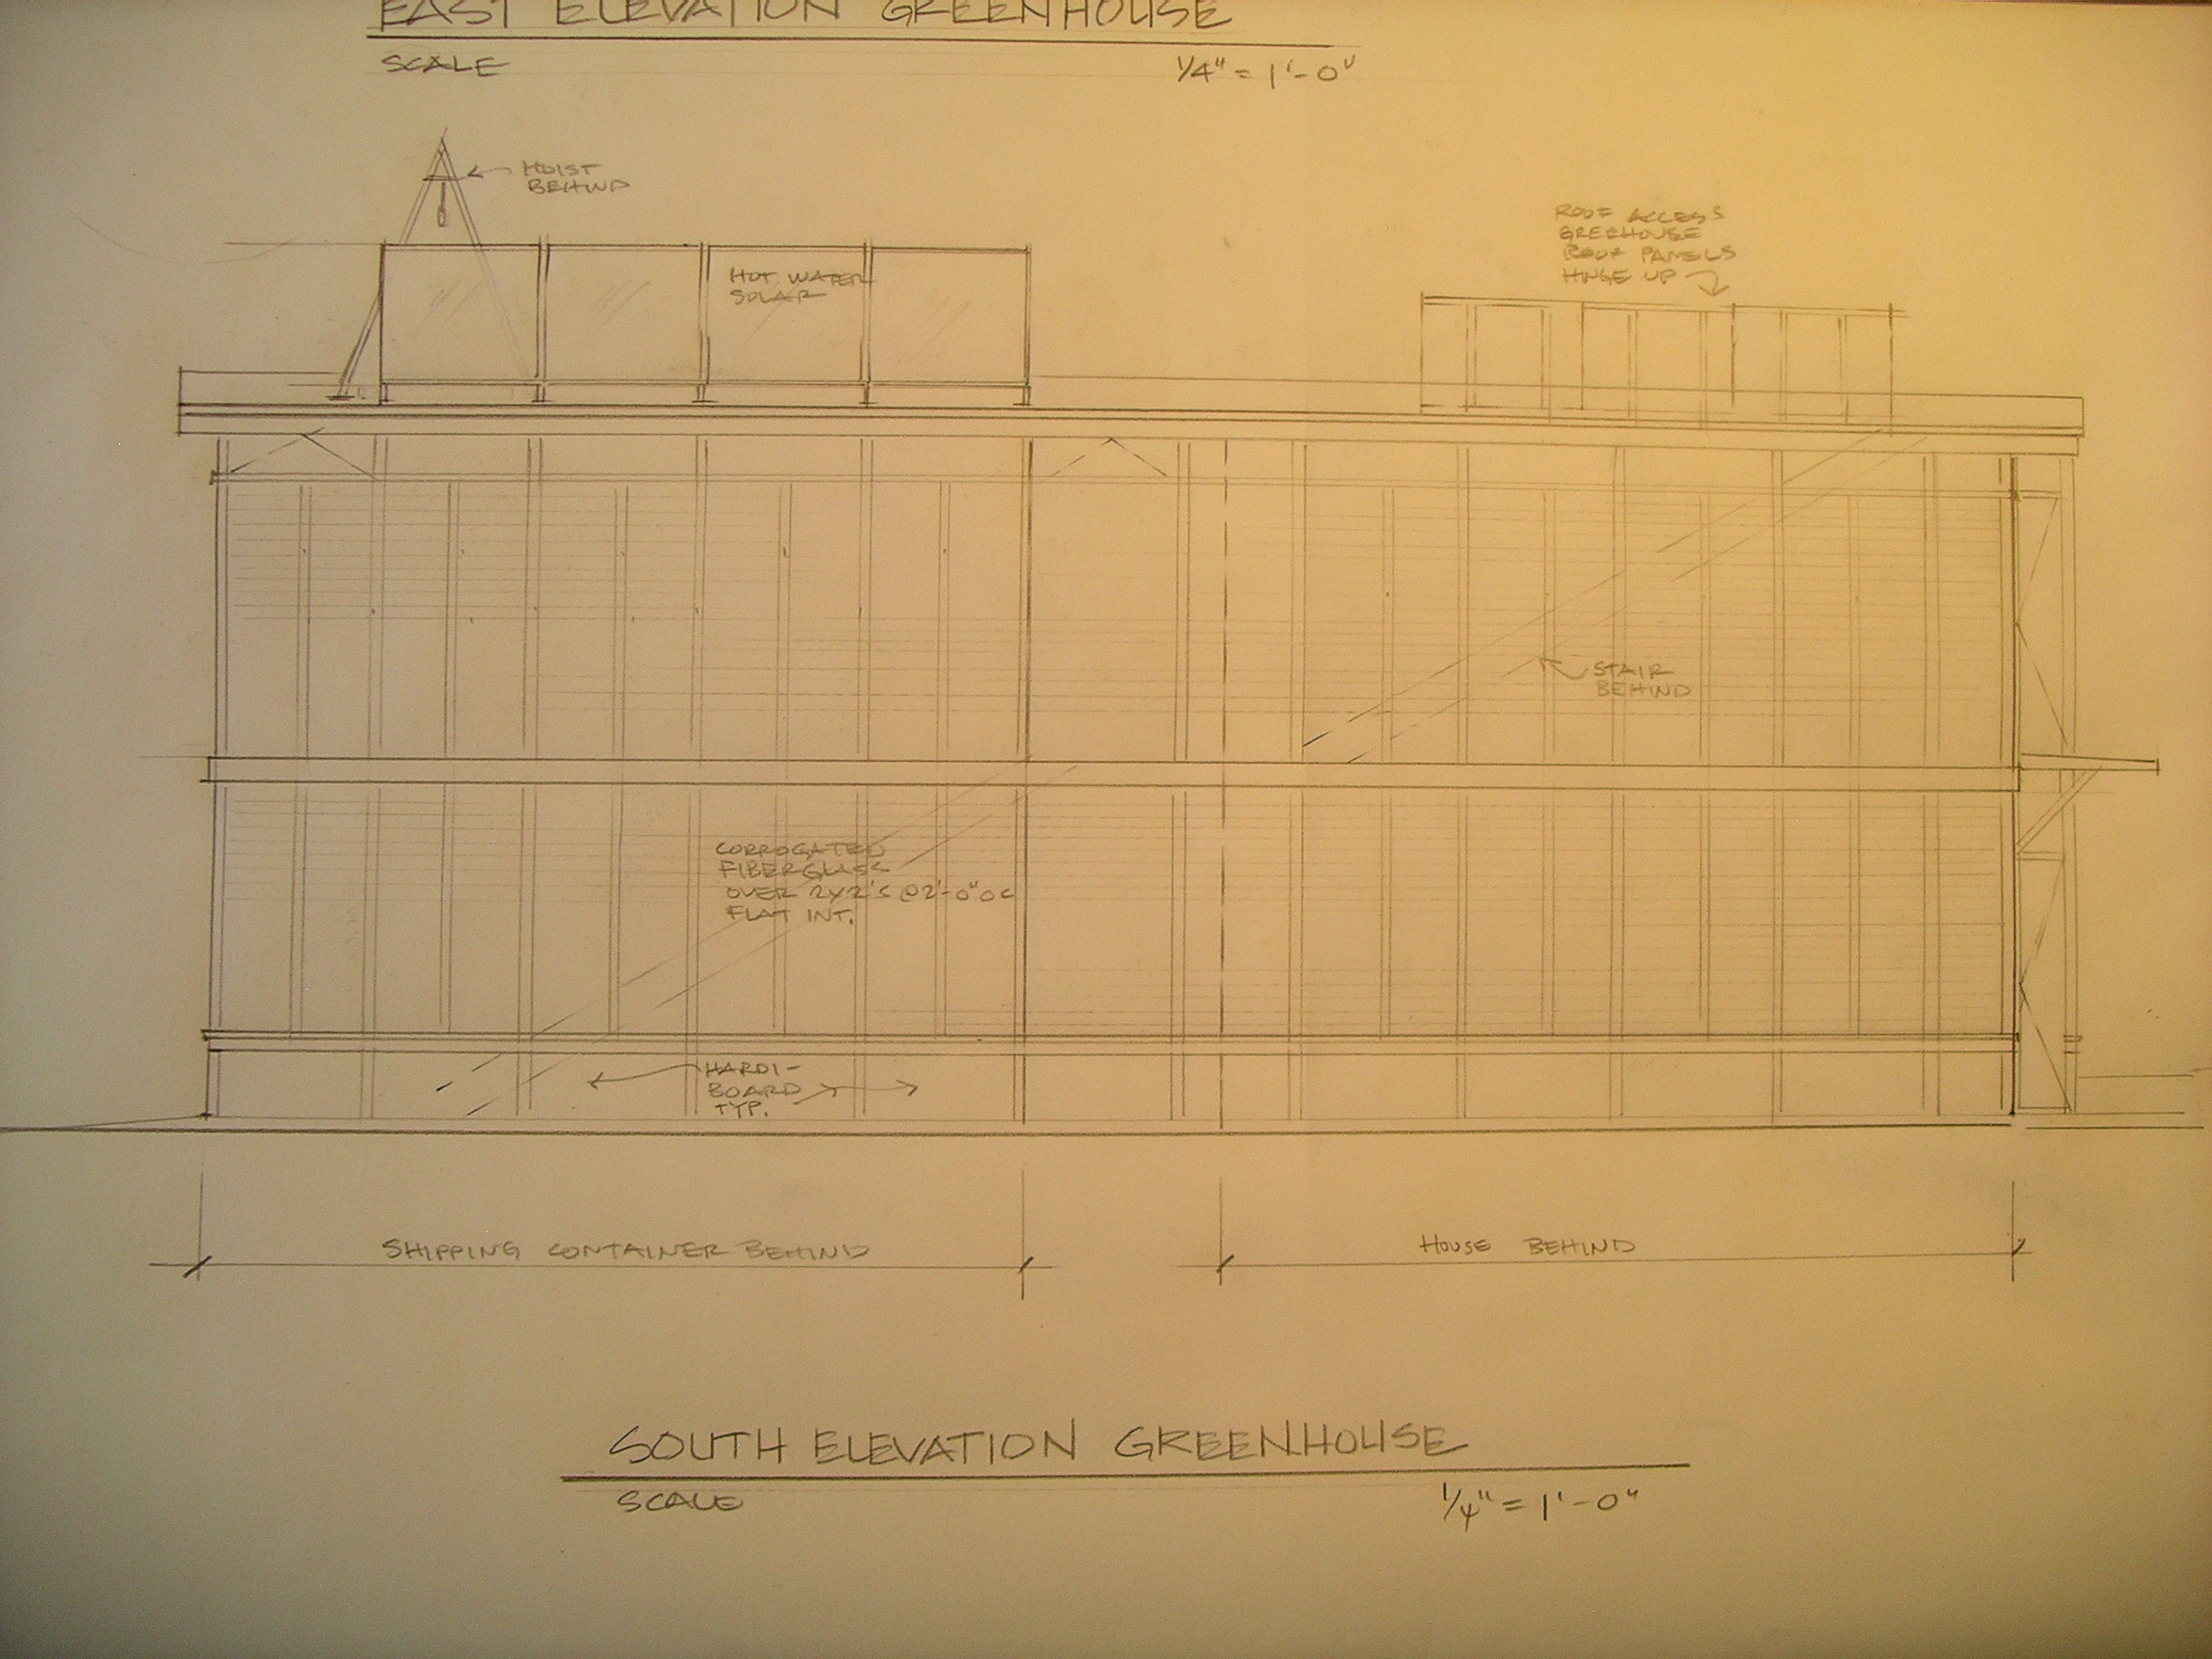 EAST ELEVATION GREENHOUSE
SCALE 1/4" = 1'-0"
HOIST
BEHIND
ROOF ACCESS
GREEHOUSE
ROOF PANELS
HINGE UP
HOT WATER
SOLAR
STAIR
BEHIND
CORROGATED
FIBERGLASS
OVER 2X2'S @ 2'-0" OC
FLAT INT.
HARDI-
BOARD
TYP.
SHIPPING CONTAINER BEHIND
HOUSE BEHIND
SOUTH ELEVATION GREENHOUSE
SCALE 1/4" = 1'-0"